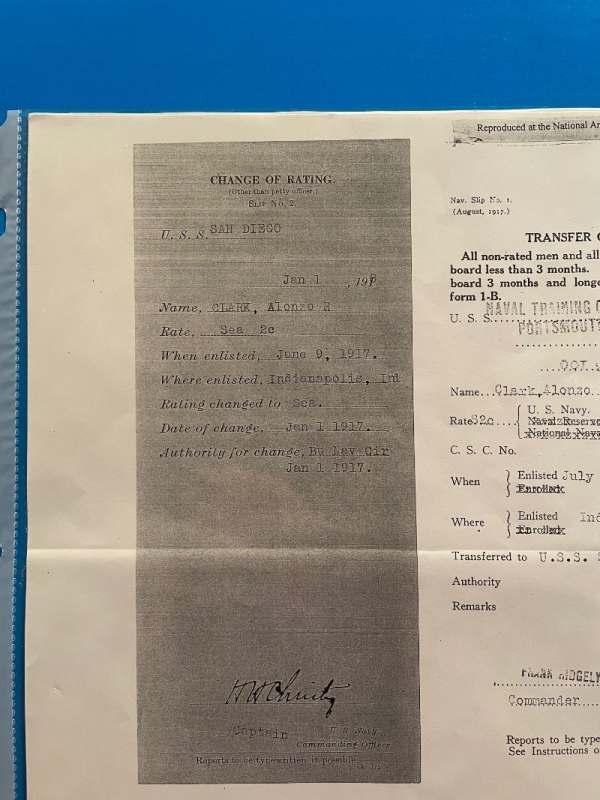 CHANGE OF RATING.
(Other than petty officer.)
SLIP No. 2.
U. S. S. SAN DIEGO
Jan 1, 198
Name, CLARK, Alonzo R
Rate, Sea 2c
When enlisted, June 9, 1917.
Where enlisted, Indianapolis, Ind
Rating changed to Sea.
Date of change, Jan 1 1917.
Authority for change, Bu Lav Cir
Jan 1 1917.
Captain U S Navy
Commanding Officer
Reports to be typewritten if possible
Reproduced at the National Ar
Nav. Slip No. 1.
(August, 1917.)
TRANSFER
All non-rated men and all
board less than 3 months.
board 3 months and longe
form 1-B.
NAVAL TRAINING
U. S. S.
PORTSMOUTH
OCT
Name...Clark, Alonzo
Rate S2c { U. S. Navy.
Naval Reserve
National Nava
C. S. C. No.
When } Enlisted July
Enrolled
Where } Enlisted Ind
Enrolled
Transferred to U.S.S.
Authority
Remarks
FRANK RIDGELY
Commander
Reports to be type
See Instructions o